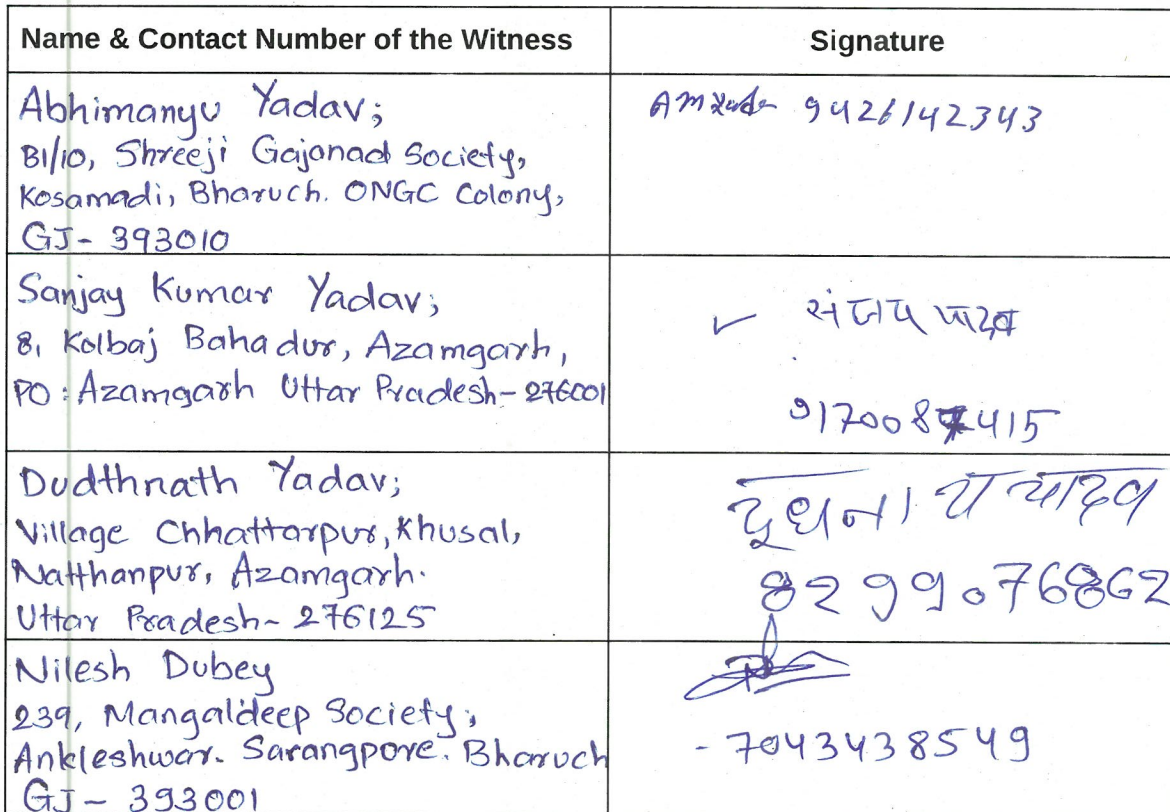 Name & Contact Number of the Witness
Signature
Abhimanyu Yadav;
B1/10, Shreeji Gajanad Society,
Kosamadi, Bharuch. ONGC Colony,
GJ- 393010
AM Yadav 9426142343
Sanjay Kumar Yadav;
8, Kolbaj Bahadur, Azamgarh,
PO: Azamgarh Uttar Pradesh- 276001
संजय यादव
917008 415
Dudthnath Yadav;
Village Chhattarpur, Khusal,
Natthanpur, Azamgarh.
Uttar Pradesh- 276125
दूधनाथ यादव
8299076862
Nilesh Dubey
239, Mangaldeep Society,
Ankleshwar. Sarangpore. Bharuch
GJ- 393001
- 7043438549